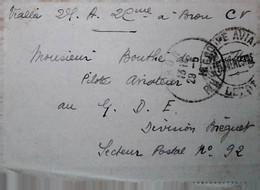 Vialla 2S. A. 2ème à Bron CV
Monsieur Bouthe de
Pilote Aviateur
au G. D. E.
Division Bréguet
Secteur Postal N° 92
GROUPE AVIA
29-5